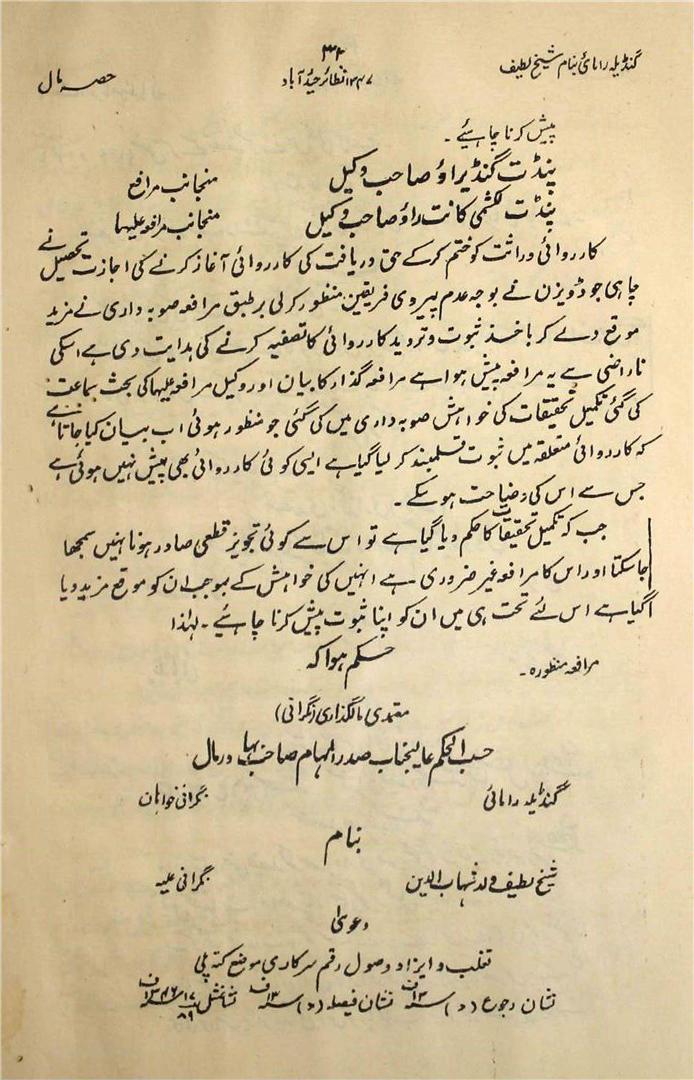 گنڈیلہ رامائی بنام شیخ لطیف
۳۴
۱۳۴۷ نظائر حیدرآباد
حصہ مال
پیش کرنا چاہئیے۔
پنڈت گنڈیراؤ صاحب وکیل منجانب مرافع
پنڈت لکشمی کانت راؤ صاحب وکیل منجانب مرافعہ علیہا
کارروائی وراثت کو ختم کرکے حق دریافت کی کارروائی آغاز کرنے کی اجازت تحصیل نے
چاہی جو ڈویزن نے بوجہ عدم پیروی فریقین منظور کرلی بر طبق مرافعہ صوبہ داری نے مزید
موقع دے کر باخذ ثبوت و تردید کارروائی کا تصفیہ کرنے کی ہدایت دی ہے اسکی
ناراضی سے یہ مرافعہ پیش ہوا ہے مرافعہ گذار کا بیان اور وکیل مرافعہ علیہا کی بحث سماعت
کی گئی تکمیل تحقیقات کی خواہش صوبہ داری میں کی گئی جو منظور ہوئی اب بیان کیا جاتا ہے
کہ کارروائی متعلقہ میں ثبوت قلمبند کر لیا گیا ہے ایسی کوئی کارروائی بھی پیش نہیں ہوئی ہے
جس سے اس کی وضاحت ہو سکے۔
جب کہ تکمیل تحقیقات کا حکم دیا گیا ہے تو اس سے کوئی تجویز قطعی صادر ہونا نہیں سمجھا
جاسکتا اور اس کا مرافعہ غیر ضروری ہے انہیں کی خواہش کے بموجب ان کو موقع مزید دیا
گیا ہے اس لئے تحت ہی میں ان کو اپنا ثبوت پیش کرنا چاہئیے۔ لہٰذا
حکم ہوا کہ
مرافعہ منظورہ۔
معتمدی مالگذاری (نگرانی)
حسب الحکم عالیجناب صدر المہام صاحب بہادر مال
گنڈیلہ رامائی نگرانی خواہان
بنام
شیخ لطیف ولد شہاب الدین نگرانی علیہ
دعویٰ
تغلب و ایزاد وصول رقم سرکاری موضع کتہ پلی
نشان رجوع (۰) ۱۳ف نشان فیصلہ (۰) ۱۳ف نشانمثل ۱۷/۸۹ ۱۳۴۶ف